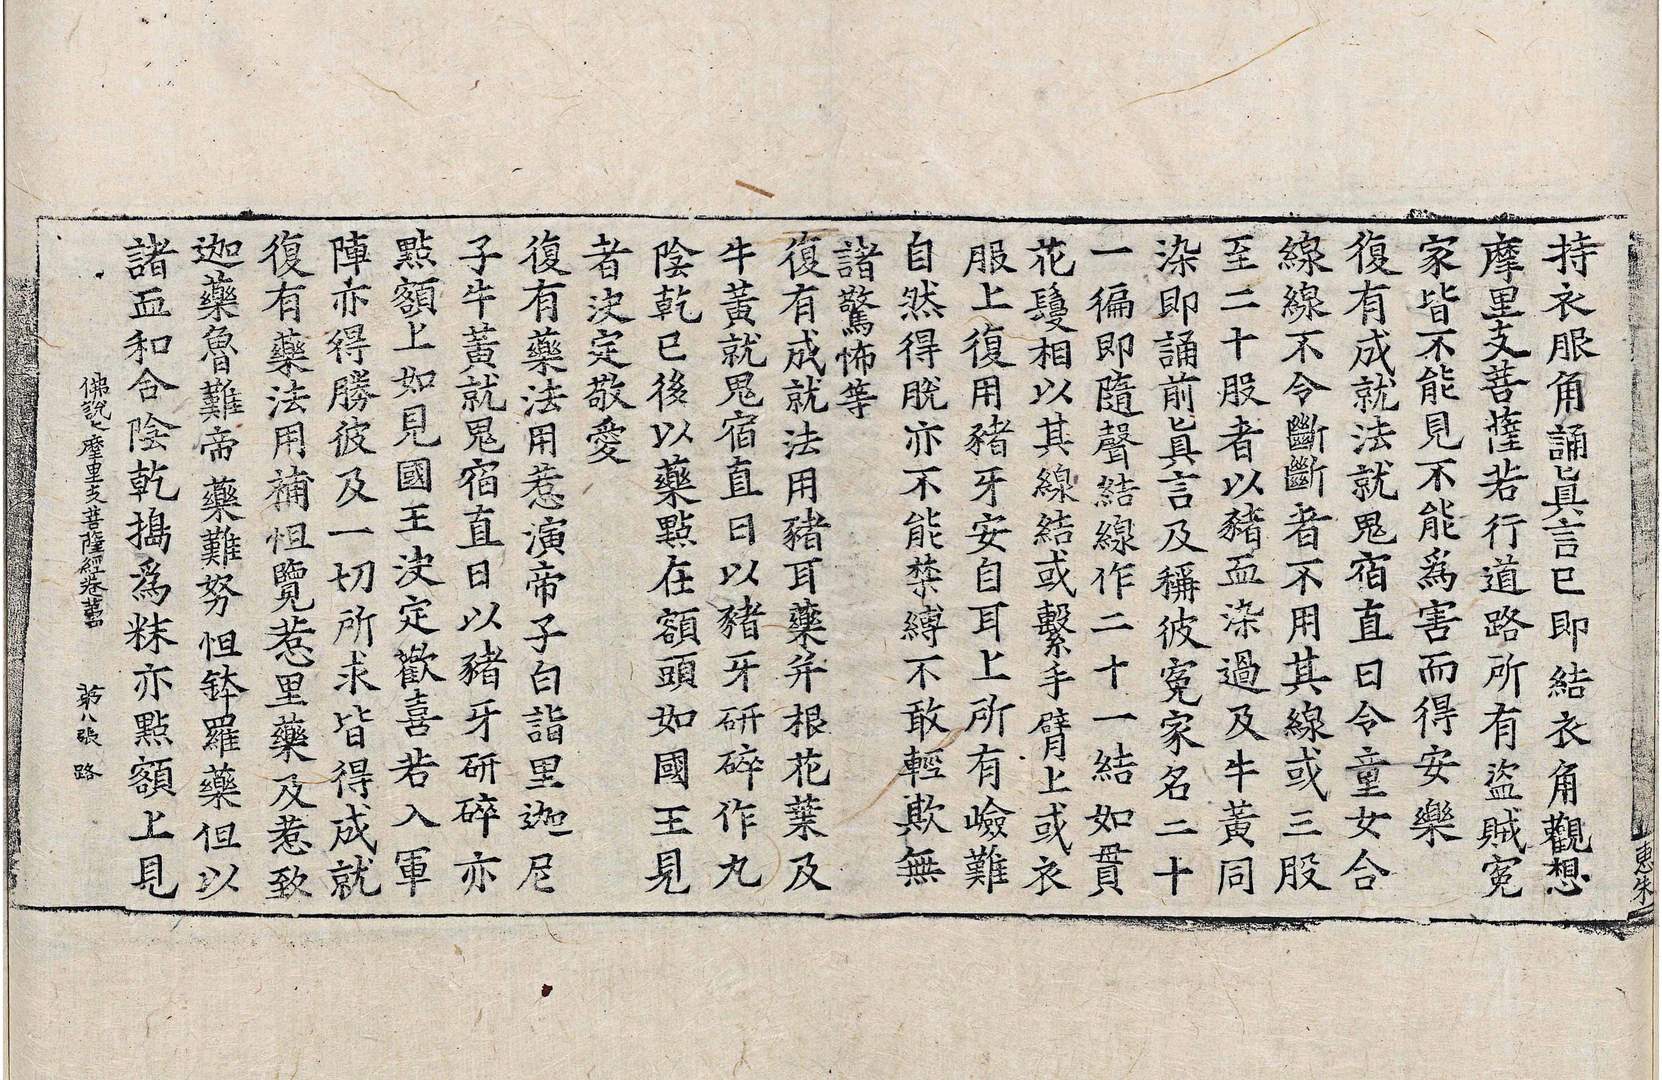 持衣服角誦眞言已即結衣角觀想
摩里支菩薩若行道路所有盜賊寃
家皆不能見不能爲害而得安樂
復有成就法就鬼宿直日令童女合
線線不令斷斷者不用其線或三股
至二十股者以豬血染過及牛黃同
染即誦前眞言及稱彼寃家名二十
一徧即隨聲結線作二十一結如貫
花鬘相以其線結或繫手臂上或衣
服上復用豬牙安自耳上所有嶮難
自然得脫亦不能禁縛不敢輕欺無
諸驚怖等
復有成就法用豬耳藥并根花葉及
牛黃就鬼宿直日以豬牙研碎作丸
陰乾已後以藥點在額頭如國王見
者決定敬愛
復有藥法用惹演帝子白詣里迦尼
子牛黃就鬼宿直日以豬牙研碎亦
點額上如見國王決定歡喜若入軍
陣亦得勝彼及一切所求皆得成就
復有藥法用補怛覽惹里藥及惹致
迦藥魯難帝藥難努怛鉢羅藥但以
諸血和合陰乾搗爲粖亦點額上見
佛說摩里支菩薩經卷第四 第八張 路
惠朱